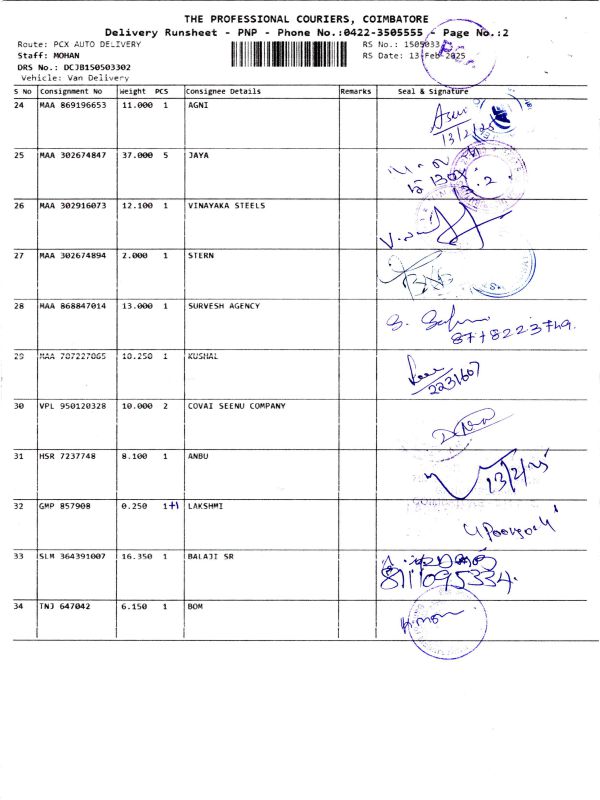 THE PROFESSIONAL COURIERS, COIMBATORE
Delivery Runsheet - PNP - Phone No.:0422-3505555 - Page No.:2
Route: PCX AUTO DELIVERY RS No.: 1505033
Staff: MOHAN RS Date: 13-Feb-2025
DRS No.: DCJB150503302
Vehicle: Van Delivery
S No Consignment No Weight PCS Consignee Details Remarks Seal & Signature
24 MAA 869196653 11.000 1 AGNI
13/2/25
25 MAA 302674847 37.000 5 JAYA
26 MAA 302916073 12.100 1 VINAYAKA STEELS
27 MAA 302674894 2.000 1 STERN
28 MAA 868847014 13.000 1 SURVESH AGENCY
8778223749.
29 MAA 707227065 10.250 1 KUSHAL
2231607
30 VPL 950120328 10.000 2 COVAI SEENU COMPANY
31 HSR 7237748 8.100 1 ANBU
13/2/25
32 GMP 857908 0.250 1+1 LAKSHMI
33 SLM 364391007 16.350 1 BALAJI SR
8111095334.
34 TNJ 647042 6.150 1 BOM